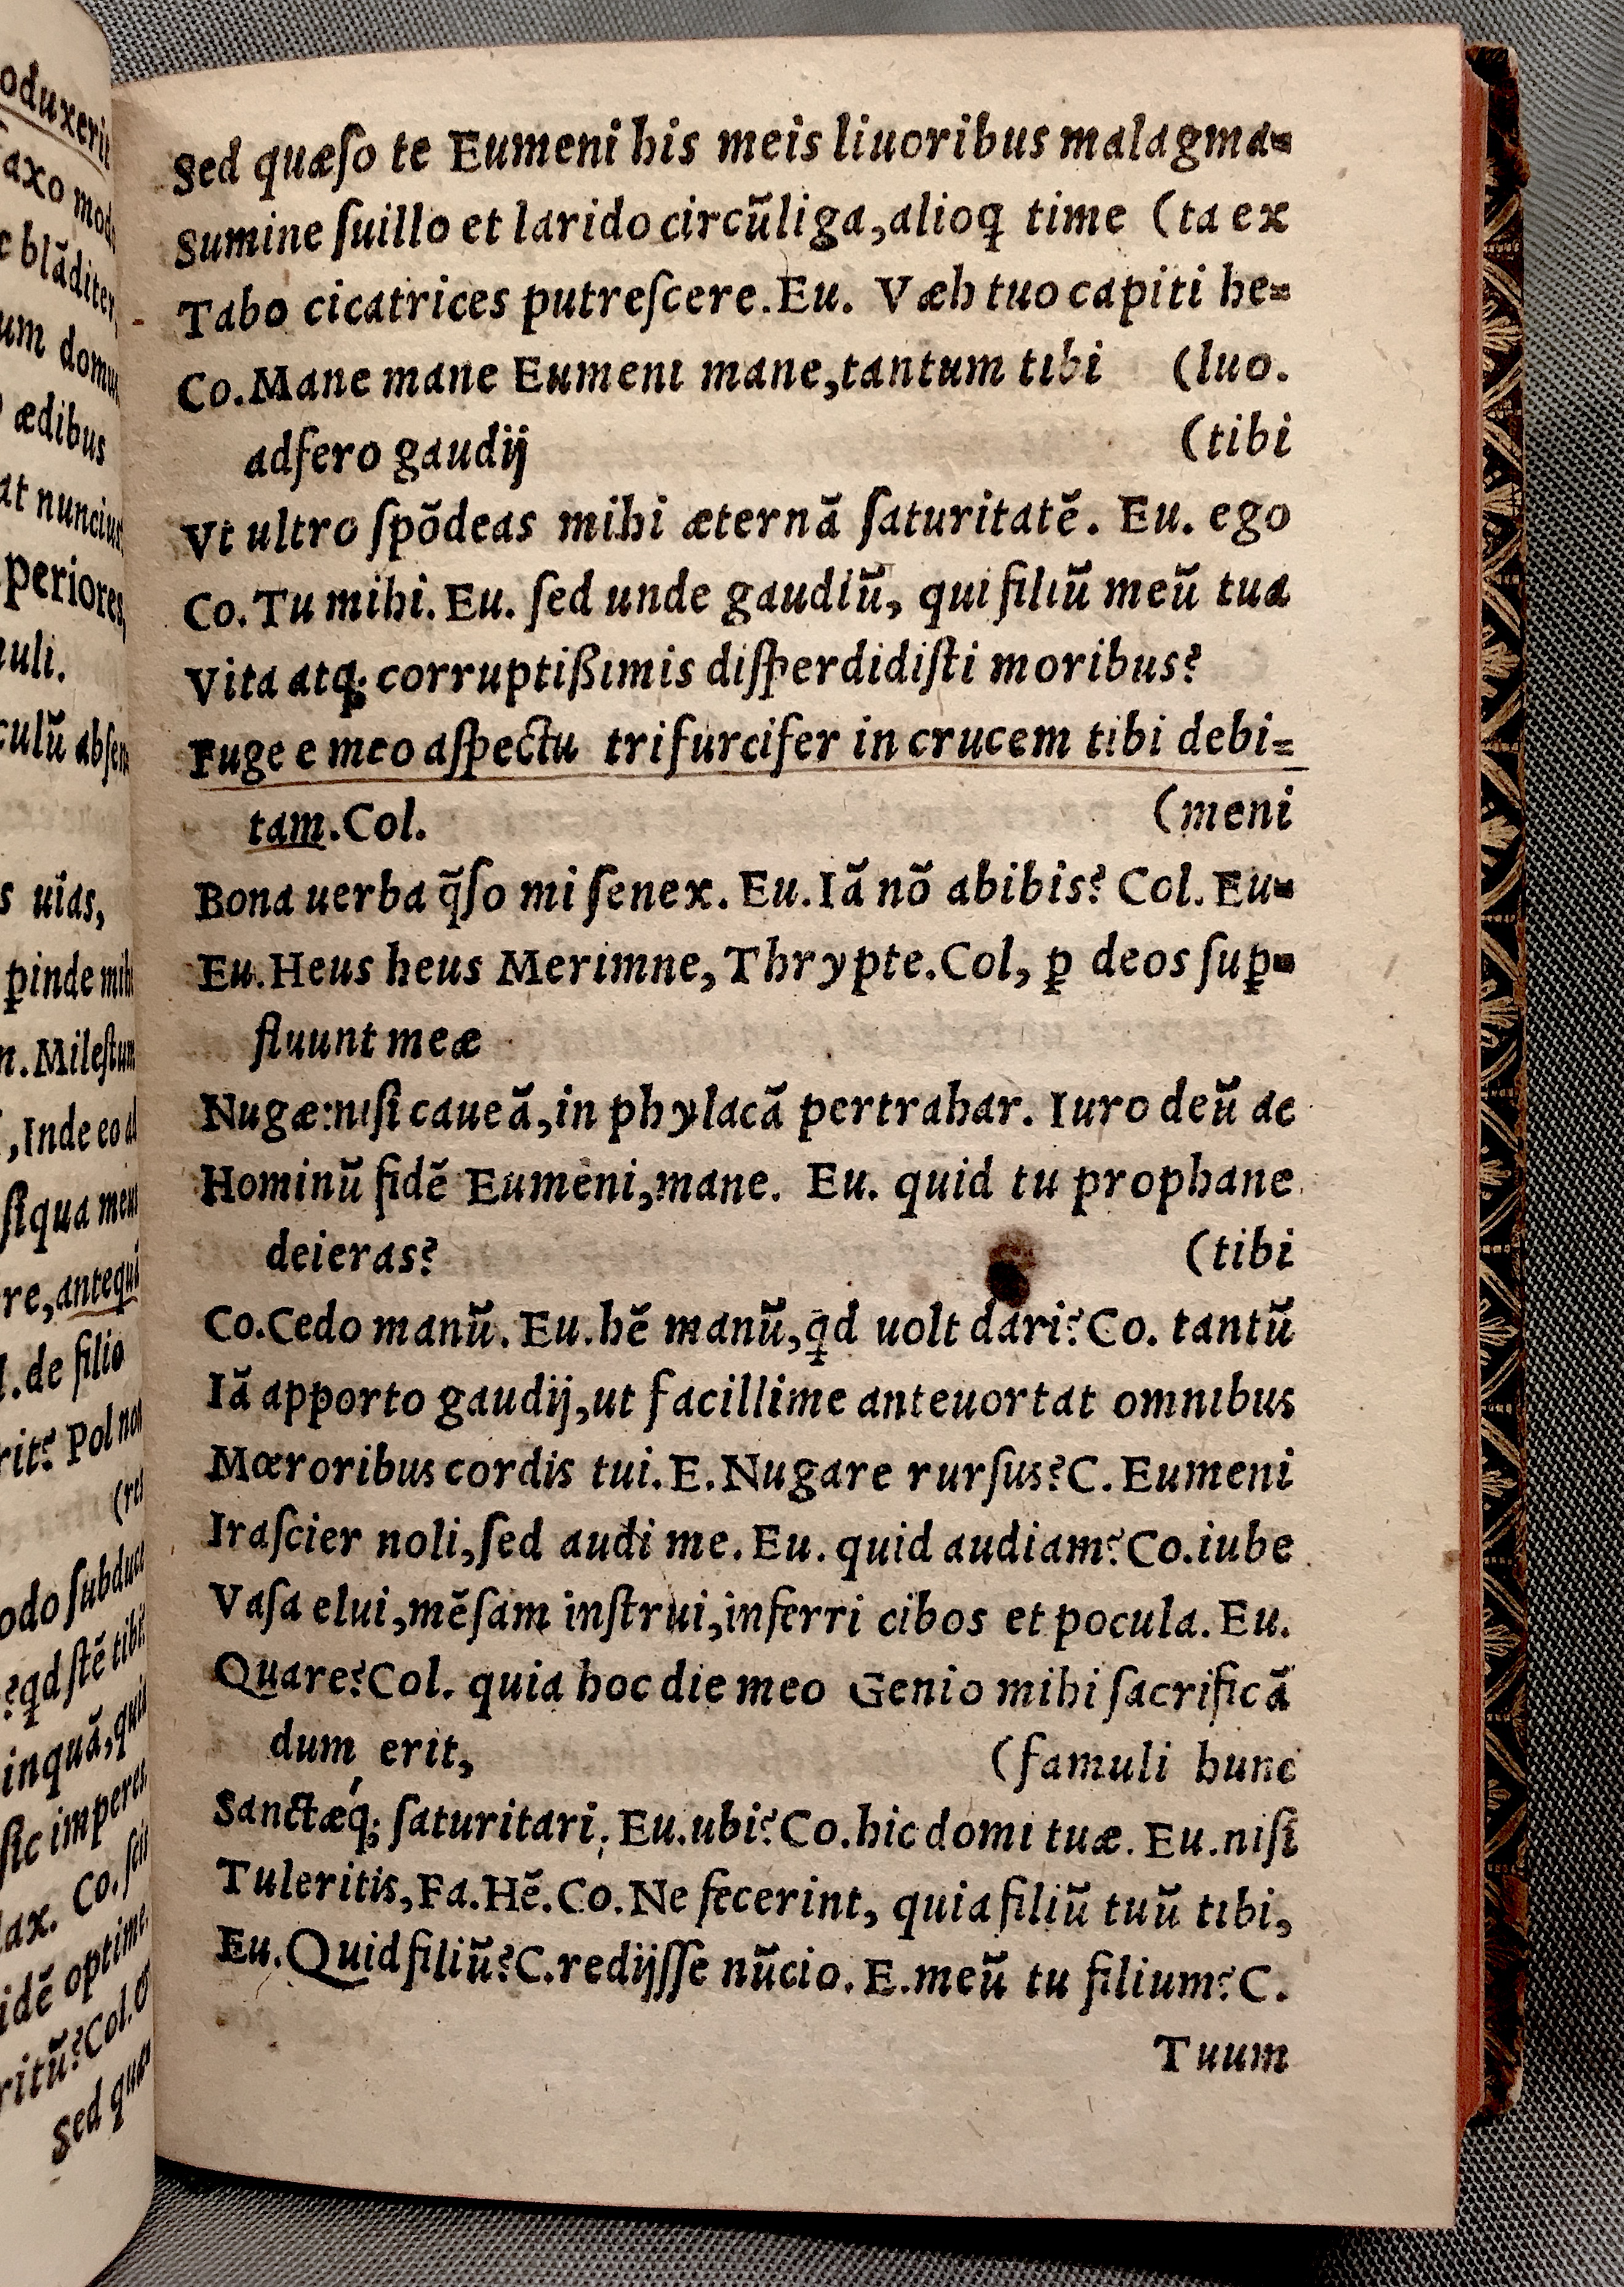 oduxerit
axo modo
c blãditer,
um domum
ædibus
at nuncius
periores,
uli.
culũ absen
s uias,
ꝑinde mihi
n. Milestum
, Inde eo ad
siqua meus
re, antequã
l. de filio
rit? Pol non
(res
odo subduce
?qd stẽ tibi?
inquã, quid
sic imperes
lax. Co. scit
idẽ optime.
ritũ? Col. &
Sed quæs
Sed quæſo te Eumeni his meis liuoribus malagma=
Sumine ſuillo et larido circũliga, alioq̃ time (ta ex
Tabo cicatrices putreſcere. Eu. Væh tuo capiti he=
Co. Mane mane Eumeni mane, tantum tibi (luo.
adfero gaudij (tibi
Vt ultro ſpõdeas mihi æternã ſaturitatẽ. Eu. ego
Co. Tu mihi. Eu. ſed unde gaudiũ, qui filiũ meũ tua
Vita atq; corruptißimis diſperdidiſti moribus?
Fuge e meo aſpectu trifurcifer in crucem tibi debi=
tam. Col. (meni
Bona uerba q̃ſo mi ſenex. Eu. Iã nõ abibis? Col. Eu=
Eu. Heus heus Merimne, Thrypte. Col, ꝑ deos ſuꝑ=
fluunt meæ
Nugæ: niſi caueã, in phylacã pertrahar. Iuro deũ ac
Hominũ fidẽ Eumeni, mane. Eu. quid tu prophane
deieras? (tibi
Co. Cedo manũ. Eu. hẽ manũ, qd uolt dari? Co. tantũ
Iã apporto gaudij, ut facillime anteuortat omnibus
Mœroribus cordis tui. E. Nugare rurſus? C. Eumeni
Iraſcier noli, ſed audi me. Eu. quid audiam? Co. iube
Vaſa elui, mẽſam inſtrui, inferri cibos et pocula. Eu.
Quare? Col. quia hoc die meo Genio mihi ſacrificã
dum erit, (famuli hunc
Sanctæq́; ſaturitati, Eu. ubi? Co. hic domi tuæ. Eu. niſi
Tuleritis, Fa. Hẽ. Co. Ne fecerint, quia filiũ tuũ tibi,
Eu. Quid filiũ? C. redijſſe nũcio. E. meũ tu filium? C.
Tuum